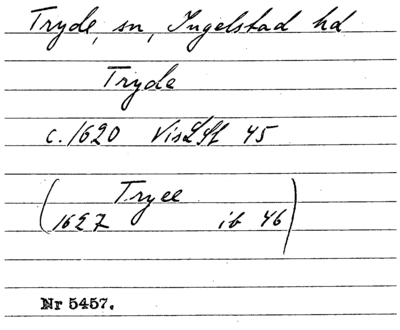 Tryde, sn, Ingelstad hd
Tryde
c. 1620 VisLSt 45
(Tryee
1627 ib 46)
Nr 5457.